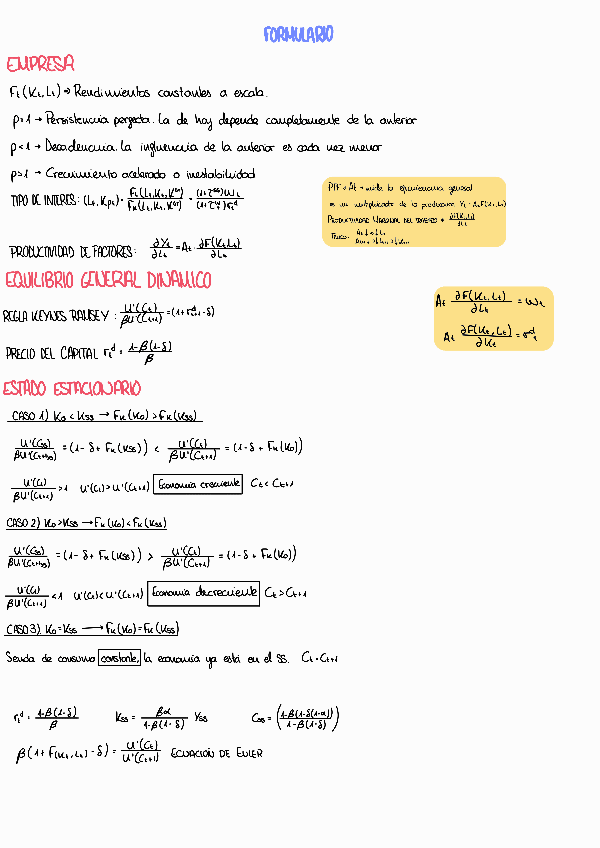 FORMULARIO
EMPRESA
Ft(Kt, Lt) → Rendimientos constantes a escala.
ρ=1 → Persistencia perfecta. La de hoy depende completamente de la anterior
ρ<1 → Decadencia. La influencia de la anterior es cada vez menor
ρ>1 → Crecimiento acelerado o inestabilidad
TIPO DE INTERES:
PTF → At → mide la eficiencia general
es un multiplicador de la producción Yt = At F(Kt, Lt)
PRODUCTIVIDAD MARGINAL DEL
∂F(Kt,Lt)/∂Lt
PRODUCTIVIDAD DE FACTORES: ∂Yt/∂Lt = At · ∂F(Kt,Lt)/∂Lt
EQUILIBRIO GENERAL DINAMICO
At ∂F(Kt,Lt)/∂Lt = ωt
At ∂F(Kt,Lt)/∂Kt = r^d_t
REGLA KEYNES RAMSEY: U'(Ct)/βU'(Ct+1) = (1+r^d_t+1-δ)
PRECIO DEL CAPITAL r^d_t = 1-β(1-δ)/β
ESTADO ESTACIONARIO
CASO 1) K0 < Kss → Fk(K0) > Fk(Kss)
U'(Css)/βU'(Ct+ss) = (1-δ+Fk(Kss)) < U'(Ct)/βU'(Ct+1) = (1-δ+Fk(K0))
U'(Ct)/βU'(Ct+1) > 1 U'(Ct) > U'(Ct+1) Economía creciente Ct < Ct+1
CASO 2) K0 > Kss → Fk(K0) < Fk(Kss)
U'(Css)/βU'(Ct+ss) = (1-δ+Fk(Kss)) > U'(Ct)/βU'(Ct+1) = (1-δ+Fk(K0))
U'(Ct)/βU'(Ct+1) < 1 U'(Ct) < U'(Ct+1) Economía decreciente Ct > Ct+1
CASO 3) K0 = Kss → Fk(K0) = Fk(Kss)
Senda de consumo constante, la economía ya está en el SS. Ct = Ct+1
r^d_t = 1-β(1-δ)/β Kss = βα/1-β(1-δ) Yss Css = (1-β(1-δ(1-α))/1-β(1-δ))
β(1+F(Kt,Lt)-δ) = U'(Ct)/U'(Ct+1) ECUACIÓN DE EULER